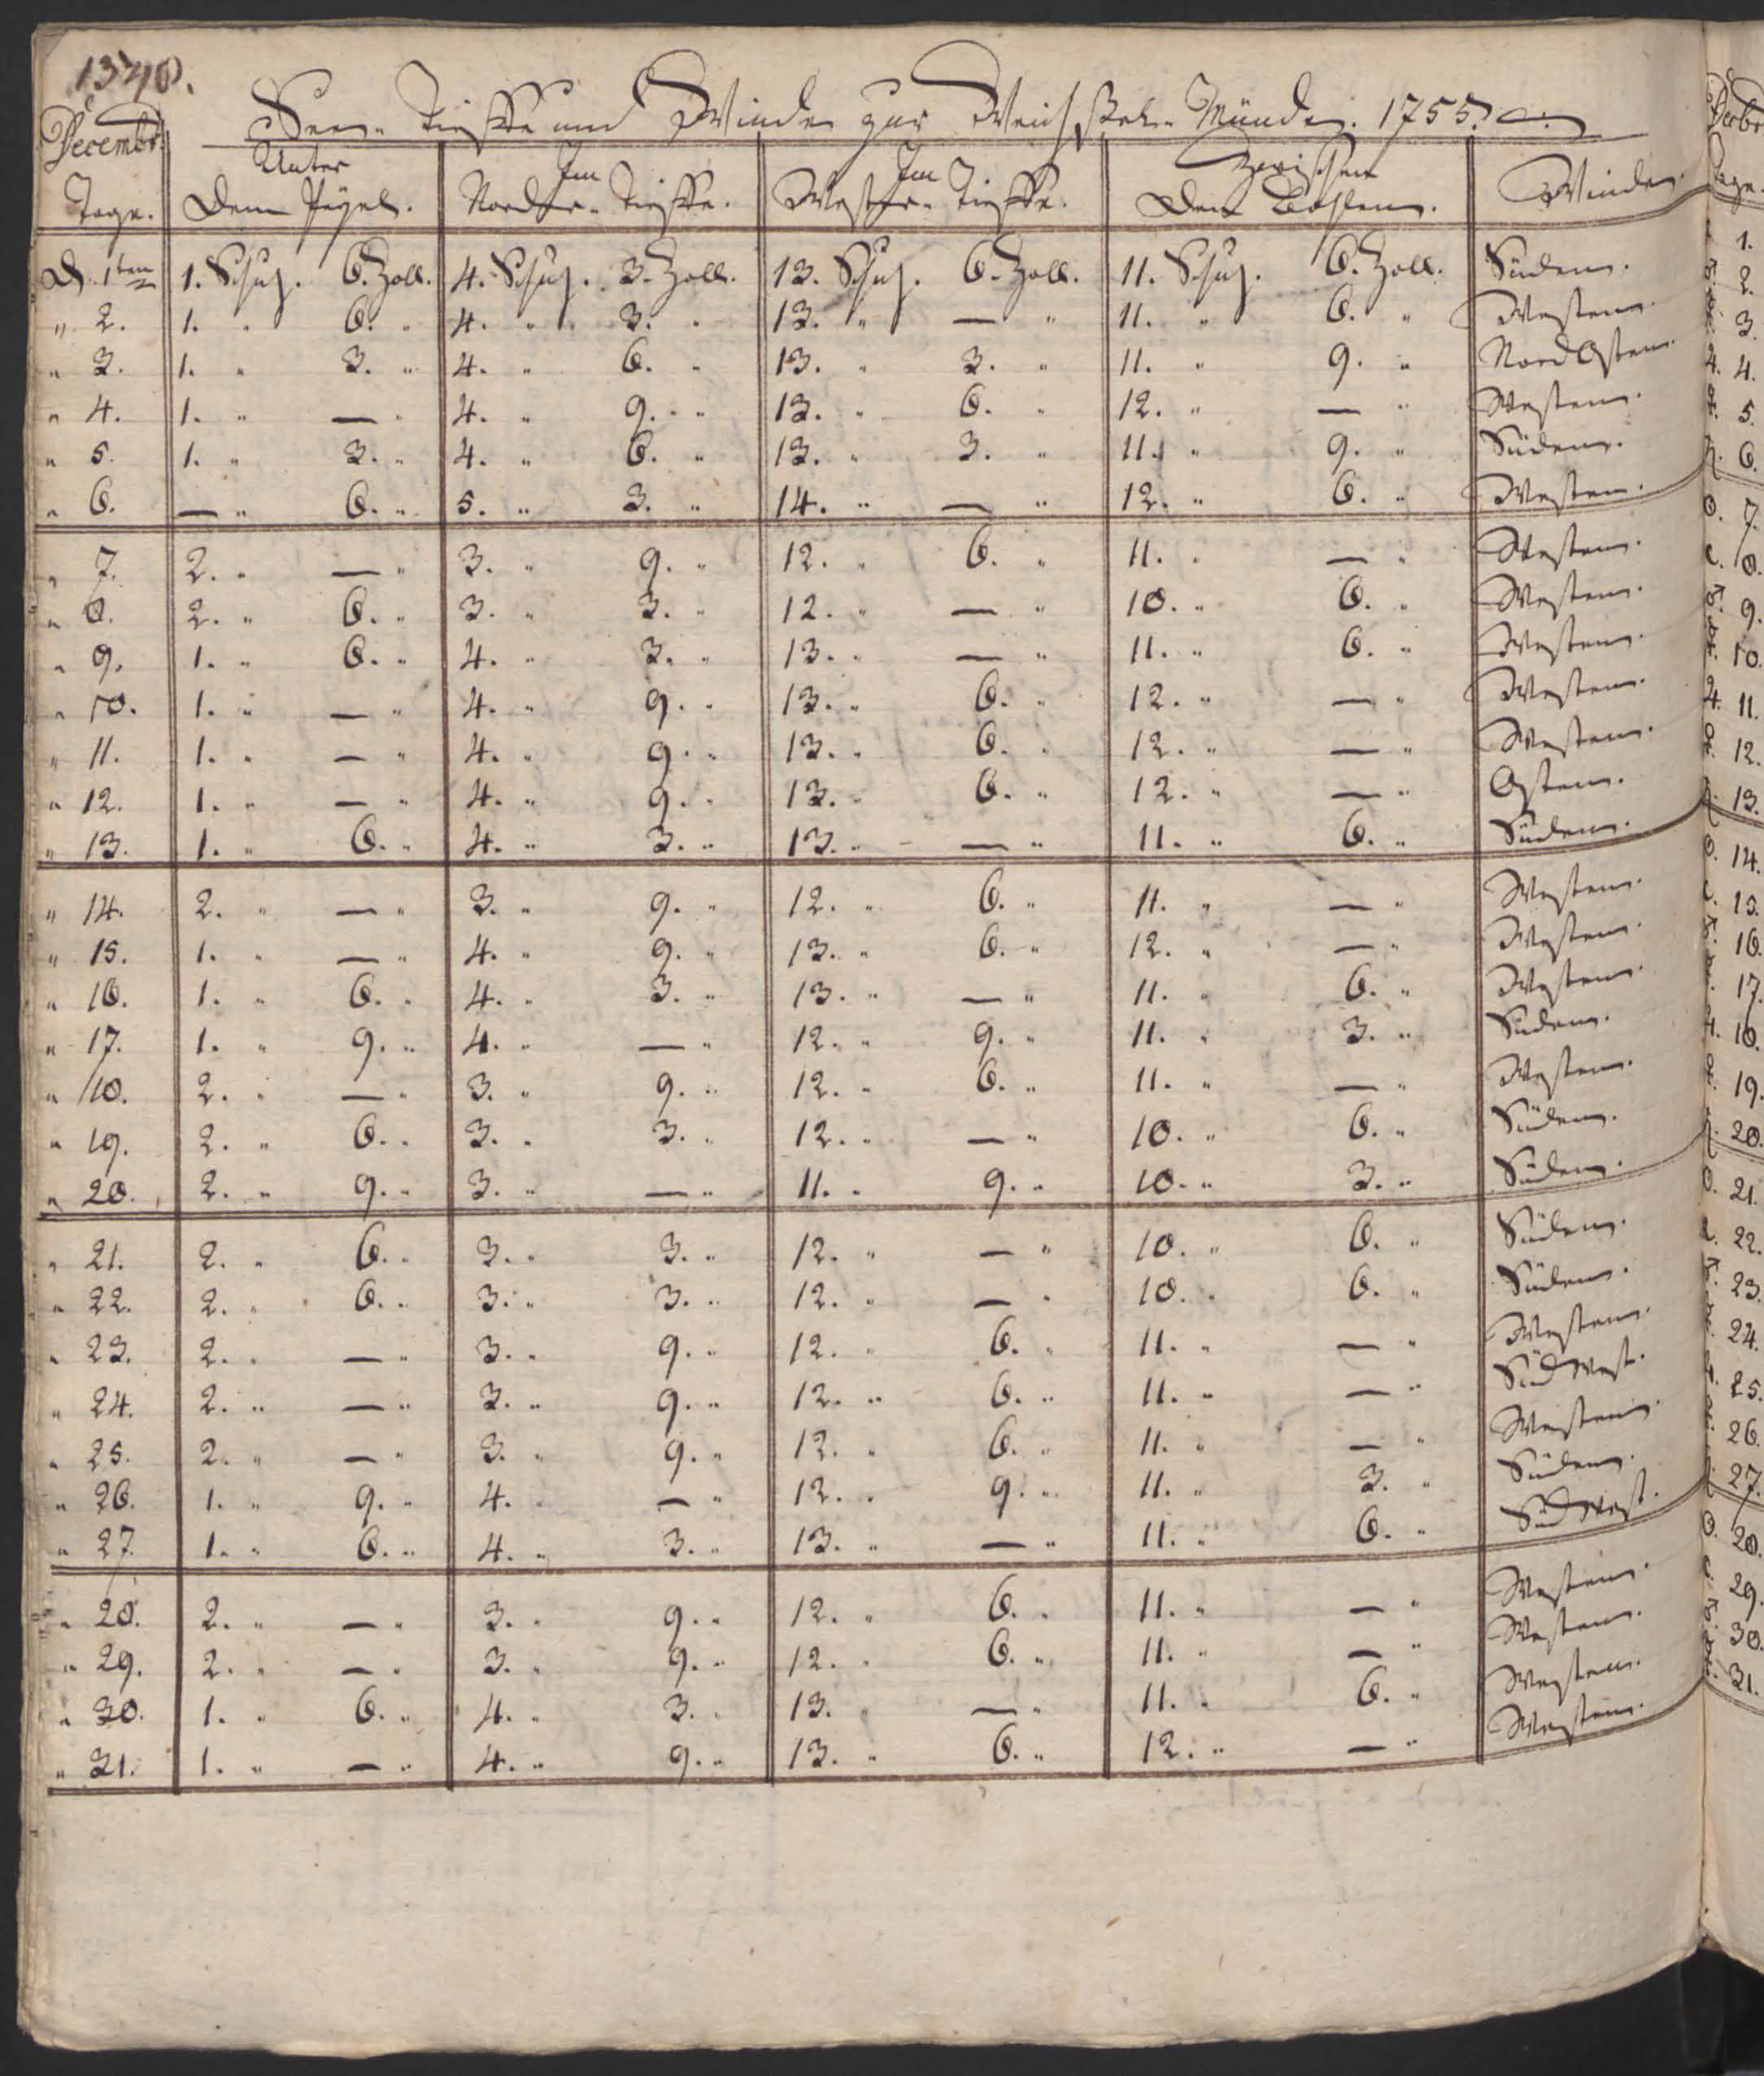 1340.
Seen- Tieffe und Winde zur Weichsel- Münde. 1755.
Decembr. Unter Im Im Zwischen
Tage. Dem Pegel. Norder- Tieffe. Wester- Tieffe. Den Bohlen. Winde.
D. 1ten 1. Schuh. 6. Zoll. 4. Schuh. 3. Zoll. 13. Schuh. 6. Zoll. 11. Schuh. 6. Zoll. Süden.
" 2. 1. " 6. " 4. " 3. " 13. " — " 11. " 6. " Westen.
" 3. 1. " 3. " 4. " 6. " 13. " 3. " 11. " 9. " Nord Osten.
" 4. 1. " — " 4. " 9. " 13. " 6. " 12. " — " Westen.
" 5. 1. " 3. " 4. " 6. " 13. " 3. " 11. " 9. " Süden.
" 6. — " 6. " 5. " 3. " 14. " — " 12. " 6. " Westen.
" 7. 2. " — " 3. " 9. " 12. " 6. " 11. " — " Westen.
" 8. 2. " 6. " 3. " 3. " 12. " — " 10. " 6. " Westen.
" 9. 1. " 6. " 4. " 3. " 13. " — " 11. " 6. " Westen.
" 10. 1. " — " 4. " 9. " 13. " 6. " 12. " — " Westen.
" 11. 1. " — " 4. " 9. " 13. " 6. " 12. " — " Westen.
" 12. 1. " — " 4. " 9. " 13. " 6. " 12. " — " Osten.
" 13. 1. " 6. " 4. " 3. " 13. " — " 11. " 6. " Süden.
" 14. 2. " — " 3. " 9. " 12. " 6. " 11. " — " Westen.
" 15. 1. " — " 4. " 9. " 13. " 6. " 12. " — " Westen.
" 16. 1. " 6. " 4. " 3. " 13. " — " 11. " 6. " Westen.
" 17. 1. " 9. " 4. " — " 12. " 9. " 11. " 3. " Süden.
" 18. 2. " — " 3. " 9. " 12. " 6. " 11. " — " Westen.
" 19. 2. " 6. " 3. " 3. " 12. " — " 10. " 6. " Süden.
" 20. 2. " 9. " 3. " — " 11. " 9. " 10. " 3. " Süden.
" 21. 2. " 6. " 3. " 3. " 12. " — " 10. " 6. " Süden.
" 22. 2. " 6. " 3. " 3. " 12. " — " 10. " 6. " Süden.
" 23. 2. " — " 3. " 9. " 12. " 6. " 11. " — " Westen.
" 24. 2. " — " 3. " 9. " 12. " 6. " 11. " — " Süd West.
" 25. 2. " — " 3. " 9. " 12. " 6. " 11. " — " Westen.
" 26. 1. " 9. " 4. " — " 12. " 9. " 11. " 3. " Süden.
" 27. 1. " 6. " 4. " 3. " 13. " — " 11. " 6. " Süd West.
" 28. 2. " — " 3. " 9. " 12. " 6. " 11. " — " Westen.
" 29. 2. " — " 3. " 9. " 12. " 6. " 11. " — " Westen.
" 30. 1. " 6. " 4. " 3. " 13. " — " 11. " 6. " Westen.
" 31. 1. " — " 4. " 9. " 13. " 6. " 12. " — " Westen.
Decbr
Tage.
1.
♂. 2.
☿. 3.
♃. 4.
♀. 5.
♄. 6.
☉. 7.
☾. 8.
♂. 9.
☿. 10.
♃. 11.
♀. 12.
♄. 13.
☉. 14.
☾. 15.
♂. 16.
☿. 17.
♃. 18.
♀. 19.
♄. 20.
☉. 21.
☾. 22.
♂. 23.
☿. 24.
♃. 25.
♀. 26.
♄. 27.
☉. 28.
☾. 29.
♂. 30.
☿. 31.